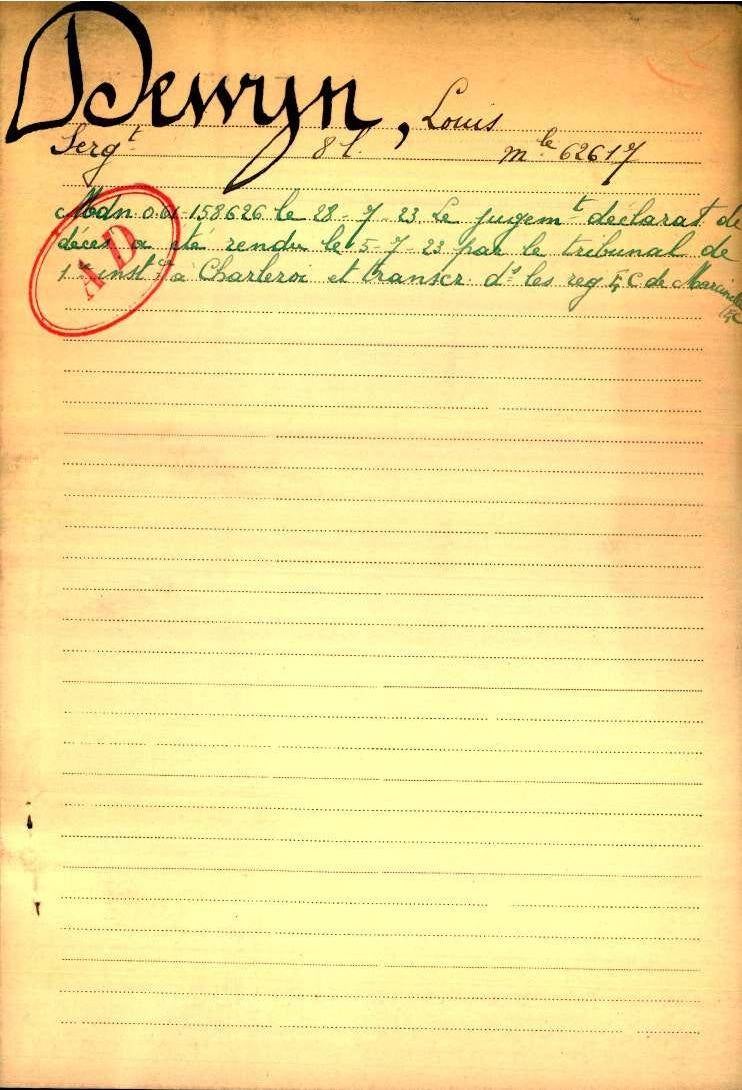 Dewyn, Louis
Sergt 8 l. mle 62617
Mdn 158626 le 28-7-23 Le jugemt déclarat de
décès a été rendu le 5-7-23 par le tribunal de
1re inst à Charleroi et transcr ds les reg EC de Marcinelle
A D